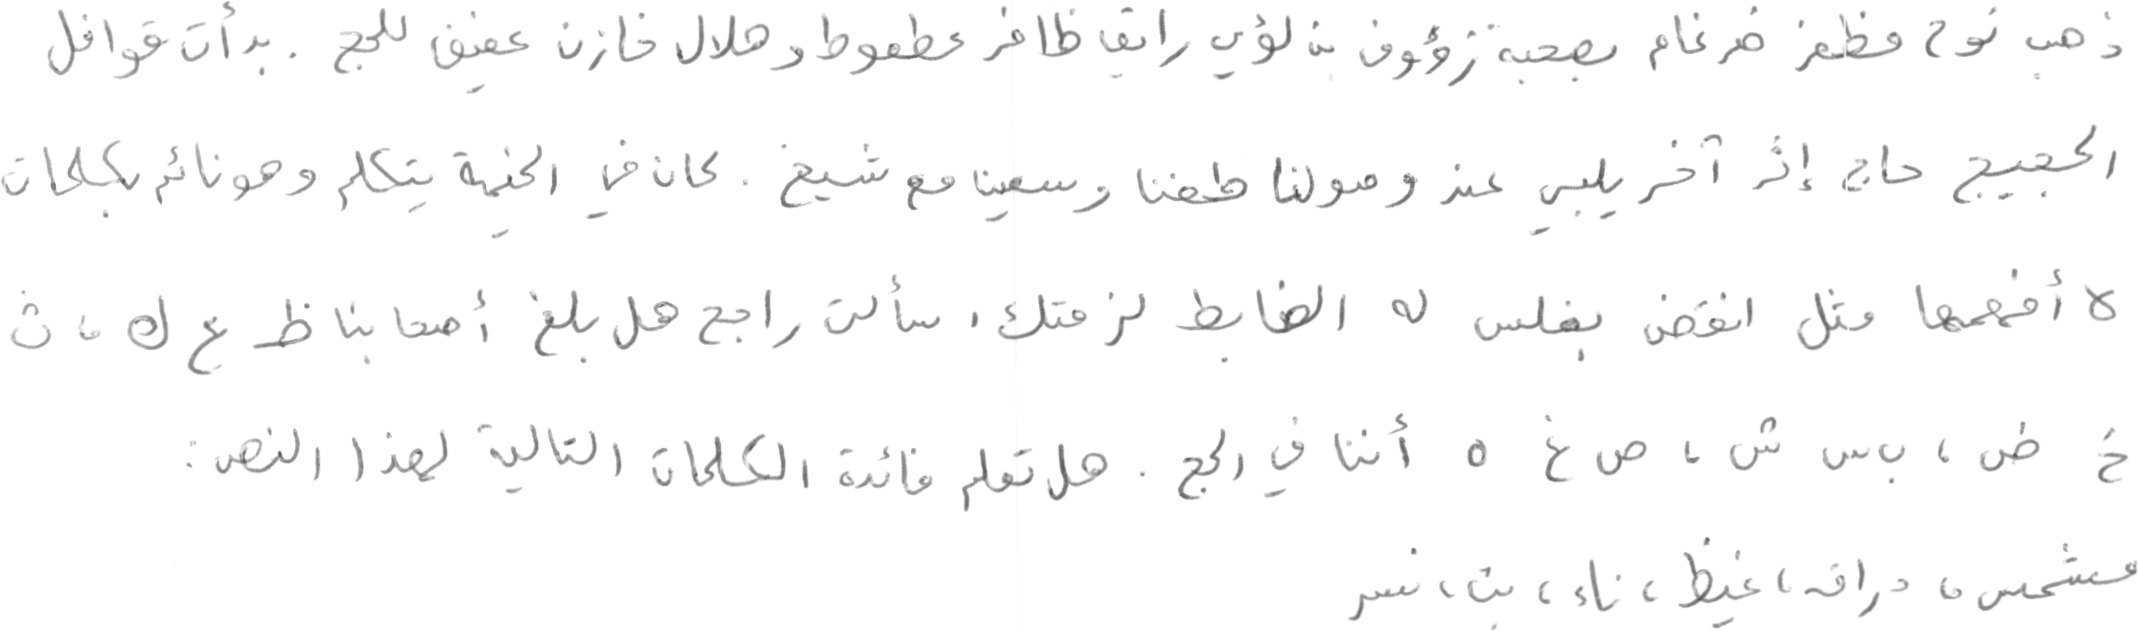 ذهب نوح مظفر ضرغام بصحبة رؤوف بن لؤي رابق ظافر عطعوط وهلال خازن عفيف للحج . بدأت قوافل
الحجيج حاج إثر آخر يلبي عند وصولنا طفنا وسعينا مع شيخ . كان في الخيمة يتكلم وهو نائم بكلمات
لا أفهمها مثل انقض بغلس له الضابط لزمتك، سألت راجح هل بلغ أصحابنا ظ ع ك ، ث
خ ض ، ب س ش ، ص غ ه أننا في الحج . هل تعلم فائدة الكلمات التالية لهذا النص :
مشمس ، دراق ، غيظ ، ناء ، بت ، نسر